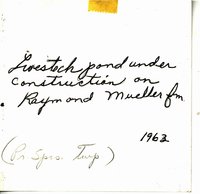 Livestock pond under
construction on
Raymond Mueller fm
1963
(Pr Sprs. Twp)